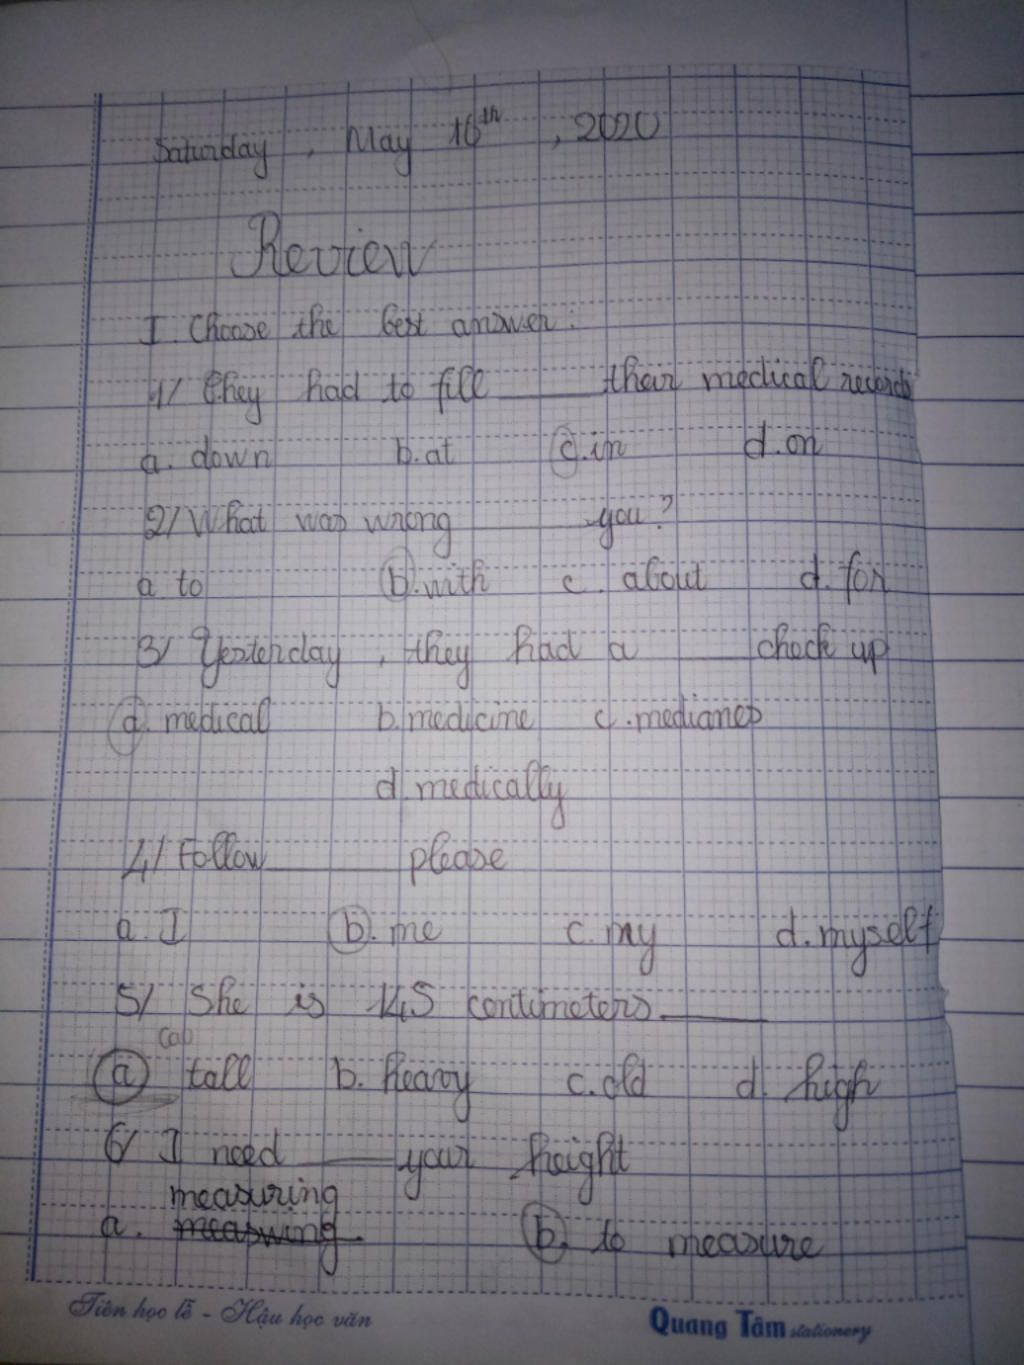 Saturday, May 16th, 2020
Review
I. Choose the best answer:
1/ They had to fill ______ their medical records
a. down b. at c. in d. on
2/ What was wrong ______ you?
a to b. with c. about d. for
3/ Yesterday, they had a ______ check up
a. medical b. medicine c. medicines
d. medically
4/ Follow ______ please
a. I b. me c. my d. myself
5/ She is 145 centimeters ______
cao
a tall b. heavy c. old d. high
6/ I need ______ your height
measuring
a. measuring. b. to measure
Tiên học lễ - Hậu học văn
Quang Tâm stationery